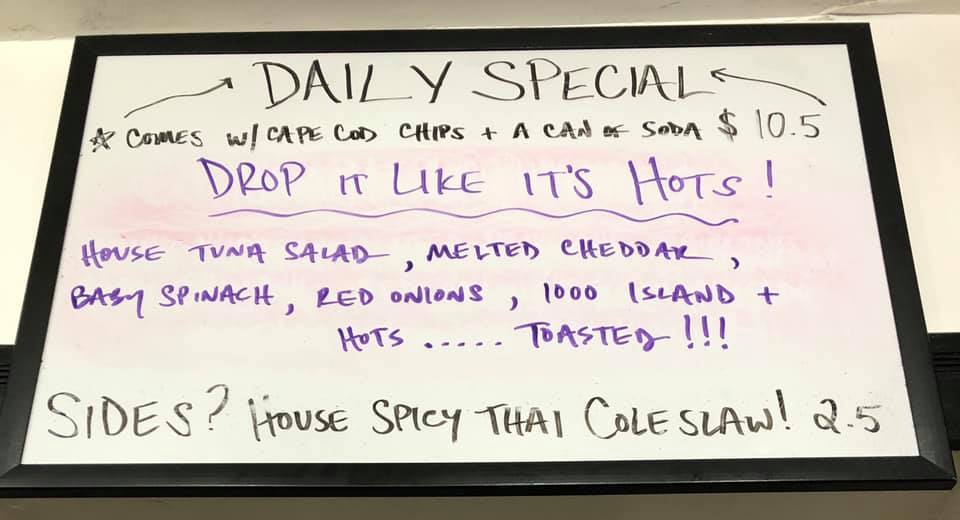 DAILY SPECIAL
☆ COMES W/ CAPE COD CHIPS + A CAN OF SODA $ 10.5
DROP IT LIKE IT'S HOTS!
HOUSE TUNA SALAD, MELTED CHEDDAR,
BABY SPINACH, RED ONIONS, 1000 ISLAND +
HOTS ..... TOASTED!!!
SIDES? HOUSE SPICY THAI COLESLAW! 2.5